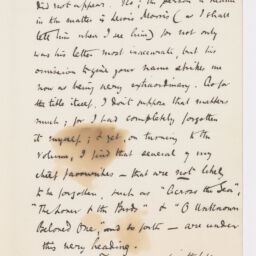 did not appear. No, the person to blame
in the matter is Lewis Morris (as I shall
tell him when I see him) for not only
was his letter most inaccurate, but his
omission to give your name strikes me
now as being very extraordinary. As for
the title itself, I don't suppose that matters
much; for I had completely forgotten
it myself; & yet, on turning to the
volume, I find that several of my
chief favourites – that were not likely
to be forgotten, such as "Across the Sea",
"The Lover of the Birds" & "O Unknown
Beloved One", and so forth – are under
this very heading.